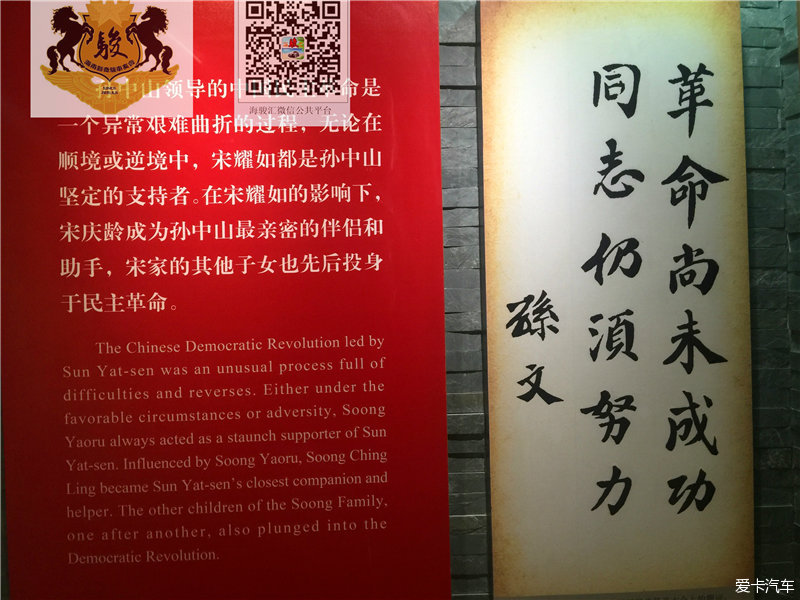 骏
海骏汇微信公共平台
孙中山领导的中 命是
一个异常艰难曲折的过程，无论在
顺境或逆境中，宋耀如都是孙中山
坚定的支持者。在宋耀如的影响下，
宋庆龄成为孙中山最亲密的伴侣和
助手，宋家的其他子女也先后投身
于民主革命。
The Chinese Democratic Revolution led by
Sun Yat-sen was an unusual process full of
difficulties and reverses. Either under the
favorable circumstances or adversity, Soong
Yaoru always acted as a staunch supporter of Sun
Yat-sen. Influenced by Soong Yaoru, Soong Ching
Ling became Sun Yat-sen's closest companion and
helper. The other children of the Soong Family,
one after another, also plunged into the
Democratic Revolution.
革命尚未成功
同志仍須努力
孫文
爱卡汽车